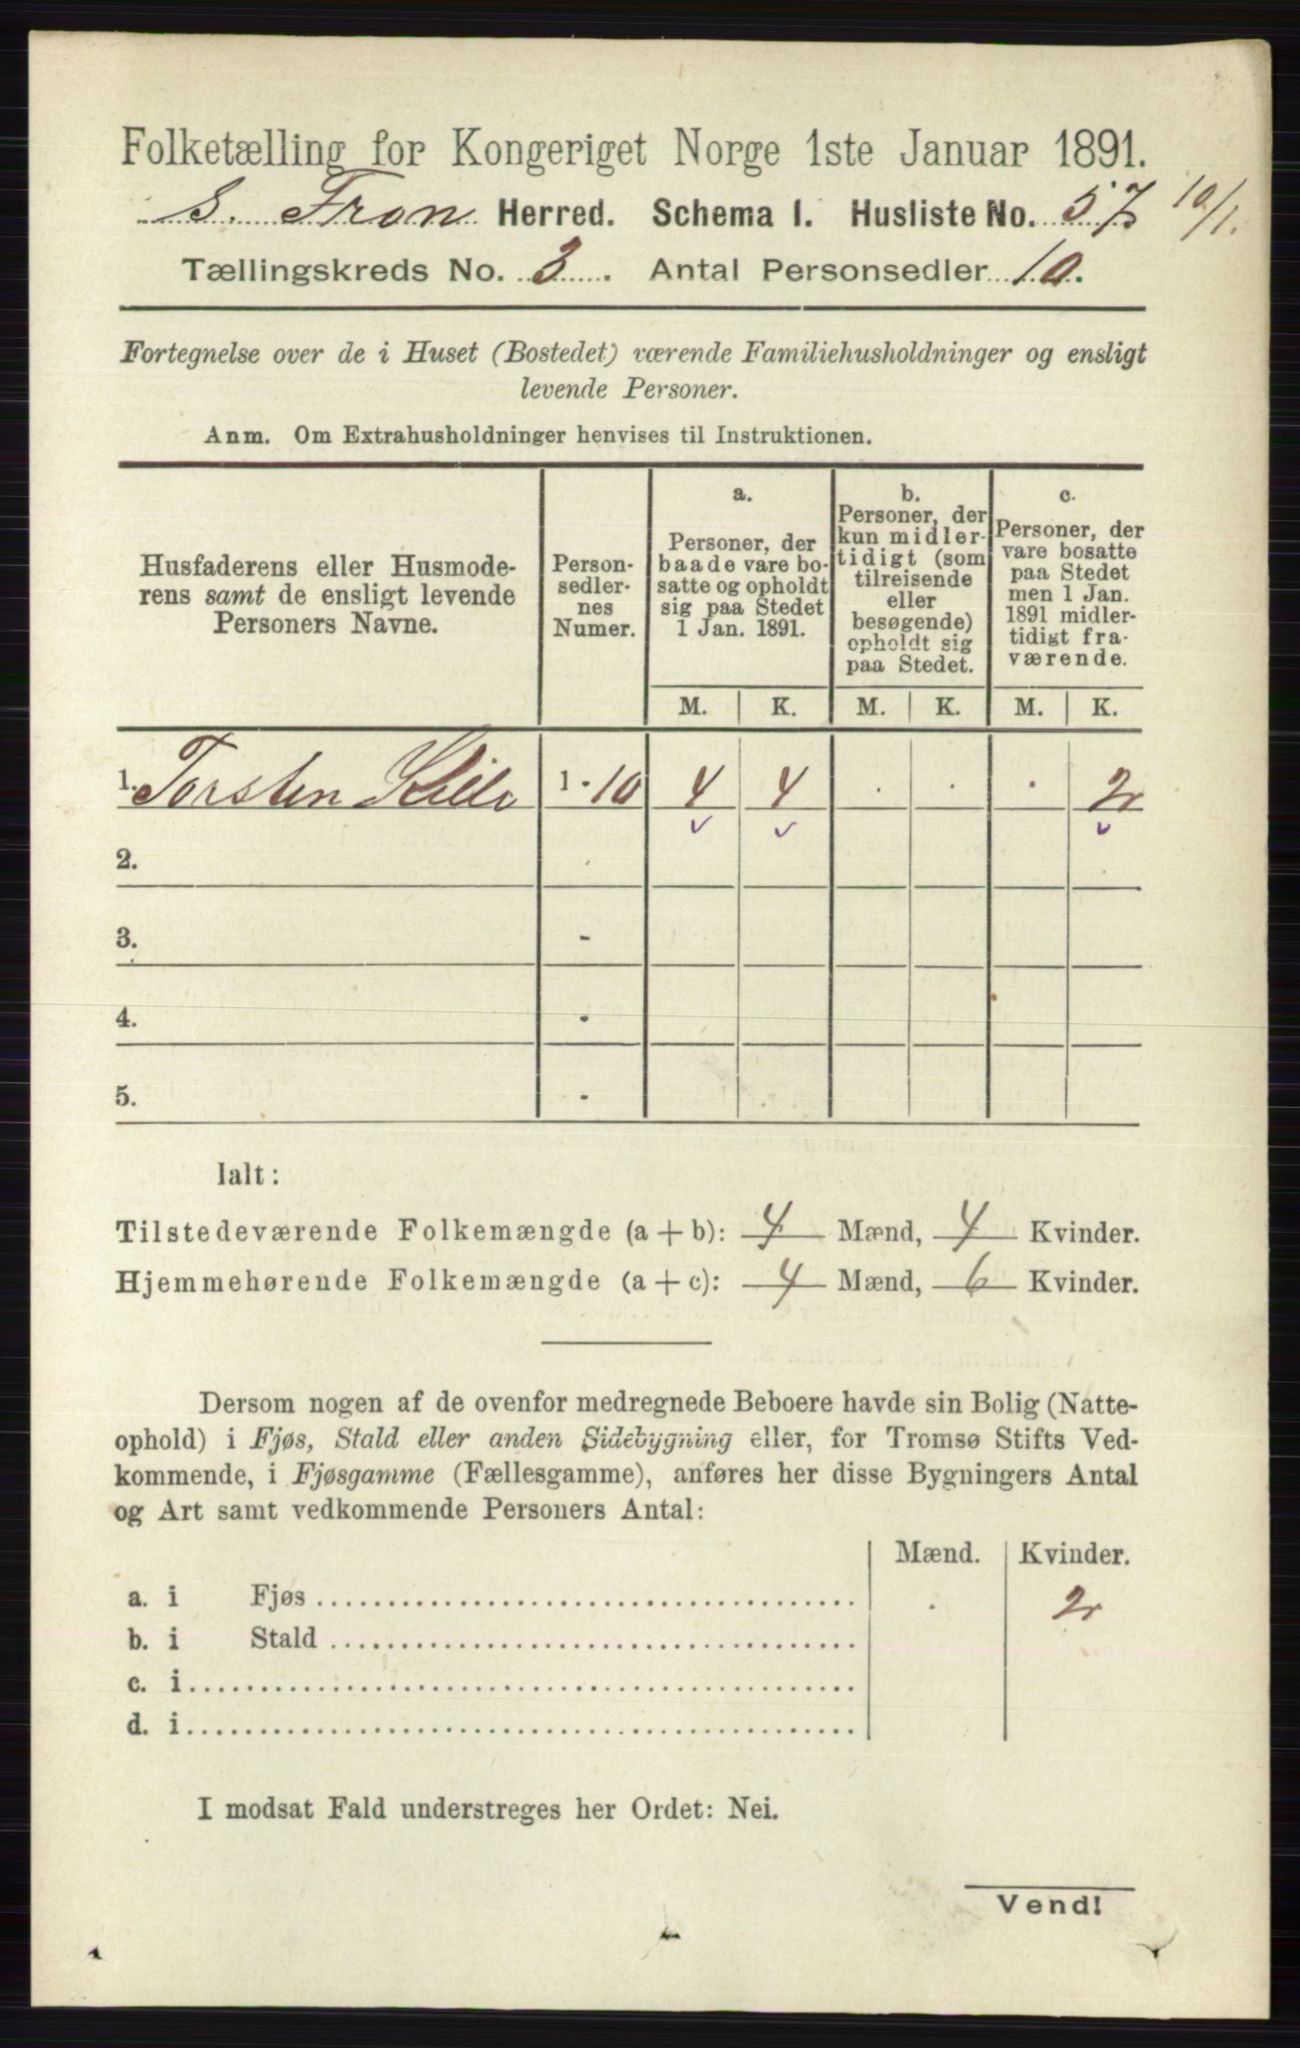 Folketælling for Kongeriget Norge 1ste Januar 1891.
S. Fron Herred. Schema I. Husliste No. 57 10/1.
Tællingskreds No. 3. Antal Personsedler 10.
Fortegnelse over de i Huset (Bostedet) værende Familiehusholdninger og ensligt
levende Personer.
Anm. Om Extrahusholdninger henvises til Instruktionen.
Husfaderens eller Husmode-
rens samt de ensligt levende
Personers Navne.
Person-
sedler-
nes
Numer.
a.
Personer, der
baade vare bo-
satte og opholdt
sig paa Stedet
1 Jan. 1891.
b.
Personer, der
kun midler-
tidigt (som
tilreisende
eller
besøgende)
opholdt sig
paa Stedet.
c.
Personer, der
vare bosatte
paa Stedet
men 1 Jan.
1891 midler-
tidigt fra-
værende.
M. K. M. K. M. K.
1. Torsten 1 - 10 4 4 . . . 2
2.
3. -
4. -
5. -
Ialt:
Tilstedeværende Folkemængde (a + b): 4 Mænd, 4 Kvinder.
Hjemmehørende Folkemængde (a + c): 4 Mænd, 6 Kvinder.
Dersom nogen af de ovenfor medregnede Beboere havde sin Bolig (Natte-
ophold) i Fjøs, Stald eller anden Sidebygning eller, for Tromsø Stifts Ved-
kommende, i Fjøsgamme (Fællesgamme), anføres her disse Bygningers Antal
og Art samt vedkommende Personers Antal:
Mænd. Kvinder.
a. i Fjøs . 2
b. i Stald
c. i
d. i
I modsat Fald understreges her Ordet: Nei.
Vend!